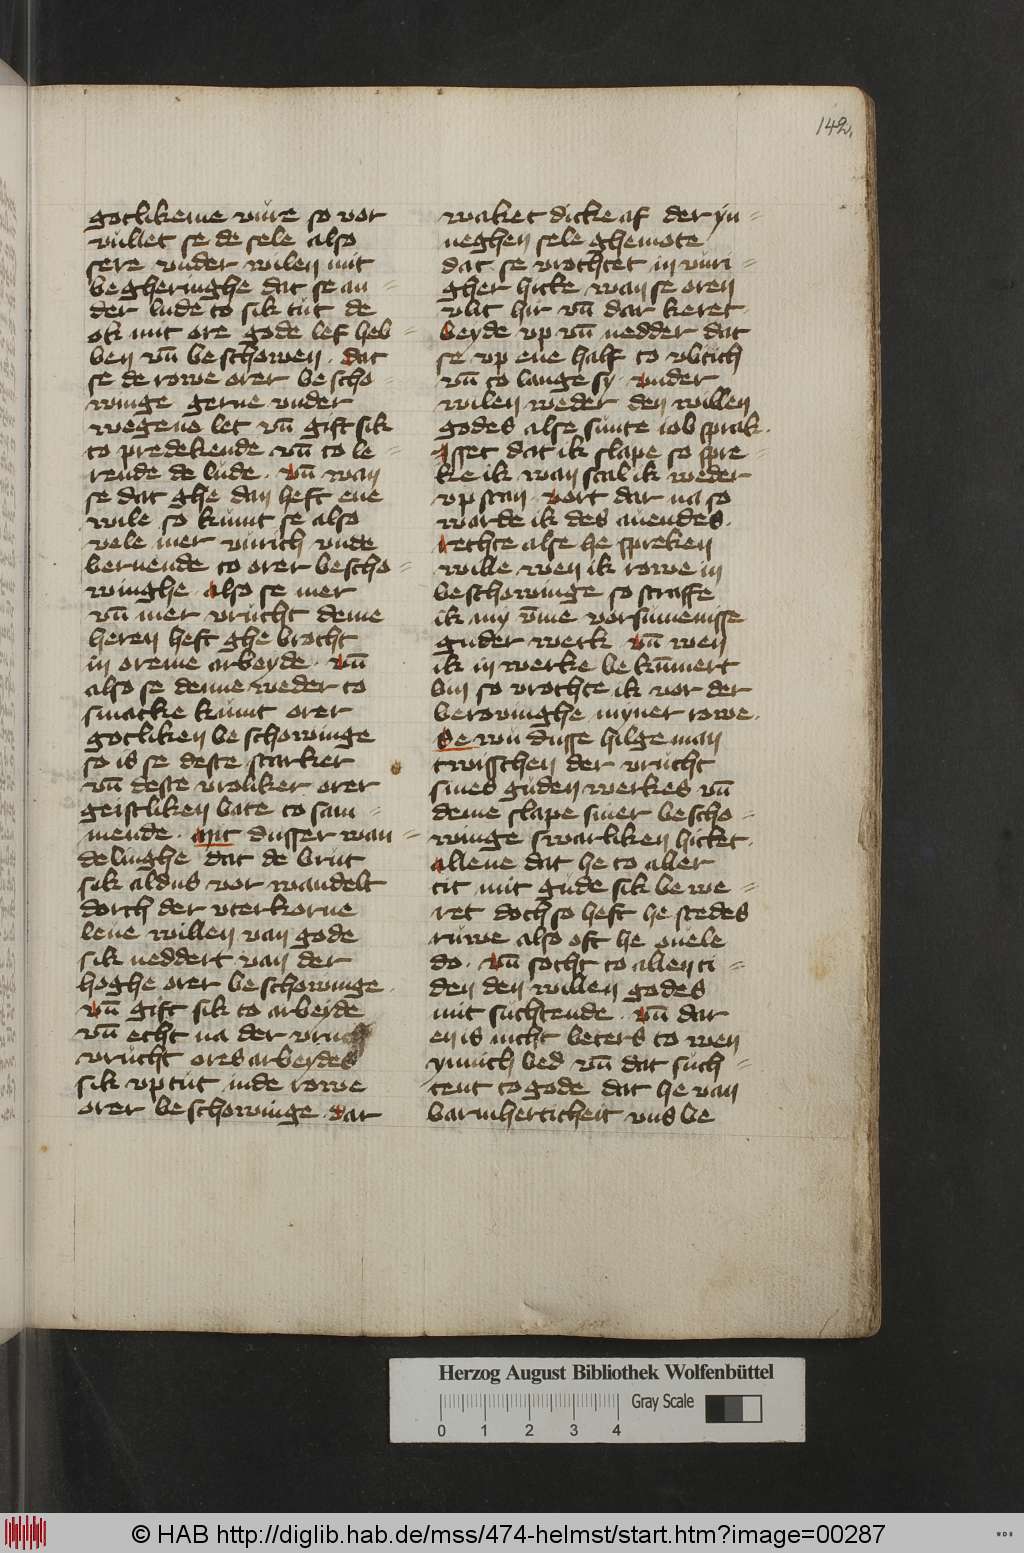 142.
gotlikeme vure so vor
vullet se de sele also
sere vnder wilen mit
begheringhe dat se an =
der lude to sik tut de
ok mit ore gode lef heb =
ben vn̄ beschowen · dat
se de rowe orer bescho =
winge gerne vnder
wegene let vn̄ gift sik
to predekende vn̄ to le =
rende de lude · vn̄ wan
se dat ghe dan heft ene
wile so kumt se also
vele mer vurich vnde
bernende to orer bescho =
winghe · also se mer
vn̄ mer vrucht deme
heren heft ghe brocht
in oreme arbeyde · vn̄
also se denne weder to
smacke kumt orer
gotliken beschowinge
so is se deste starker
vn̄ deste vroliker orer
geistliken bate to sam =
mende · mit dusser wan =
delinghe dat de brut
sik aldus vor wandelt
dorch der vterkorne
leue willen van gode
sik neddert van der
hoghe orer beschowinge ·
vn̄ gift sik to arbeyde
vn̄ echt na der vruch
vrucht ores arbeydes
sik vp tut inde rowe
orer beschowinge · dar
waket dicke af der yn =
neghen sele ghemote
dat se vrochtet in vuri =
gher hicke wan se oren
vlit hir vn̄ dar keret ·
beyde vp vn̄ nedder dat
se vp ene half to vltich
vn̄ to lange sy · vnder
wilen weder den willen
godes alse sunte iob sprak ·
isset dat ik slape so spre =
ke ik wan scal ik weder
vp stan · vort dar na so
warde ik des auendes ·
rechte alse he spreken
wille wen ik rowe in
beschowinge so straffe
ik my vm̄e vorsumenisse
guder werk · vn̄ wen
ik in werke bekum̄ert
bin so vrochte ik vor der
berouinghe myner rowe ·
Se wu dusse hilge man
twisschen der vrucht
sines guden werkes vn̄
deme slape siner bescho =
winge swarliken hicket ·
allene dat he to aller
tit mit gude sik bewe =
ret doch so heft he stedes
ruwe also oft he ouele
do · vn̄ socht to allen ti =
den den willen godes
mit suchtende · vn̄ dar
en is nicht beters to wen
ynnich bed vn̄ dat such =
tent to gode dat he van
barmherticheit vns be
Herzog August Bibliothek Wolfenbüttel
Gray Scale
0 1 2 3 4
© HAB http://diglib.hab.de/mss/474-helmst/start.htm?image=00287